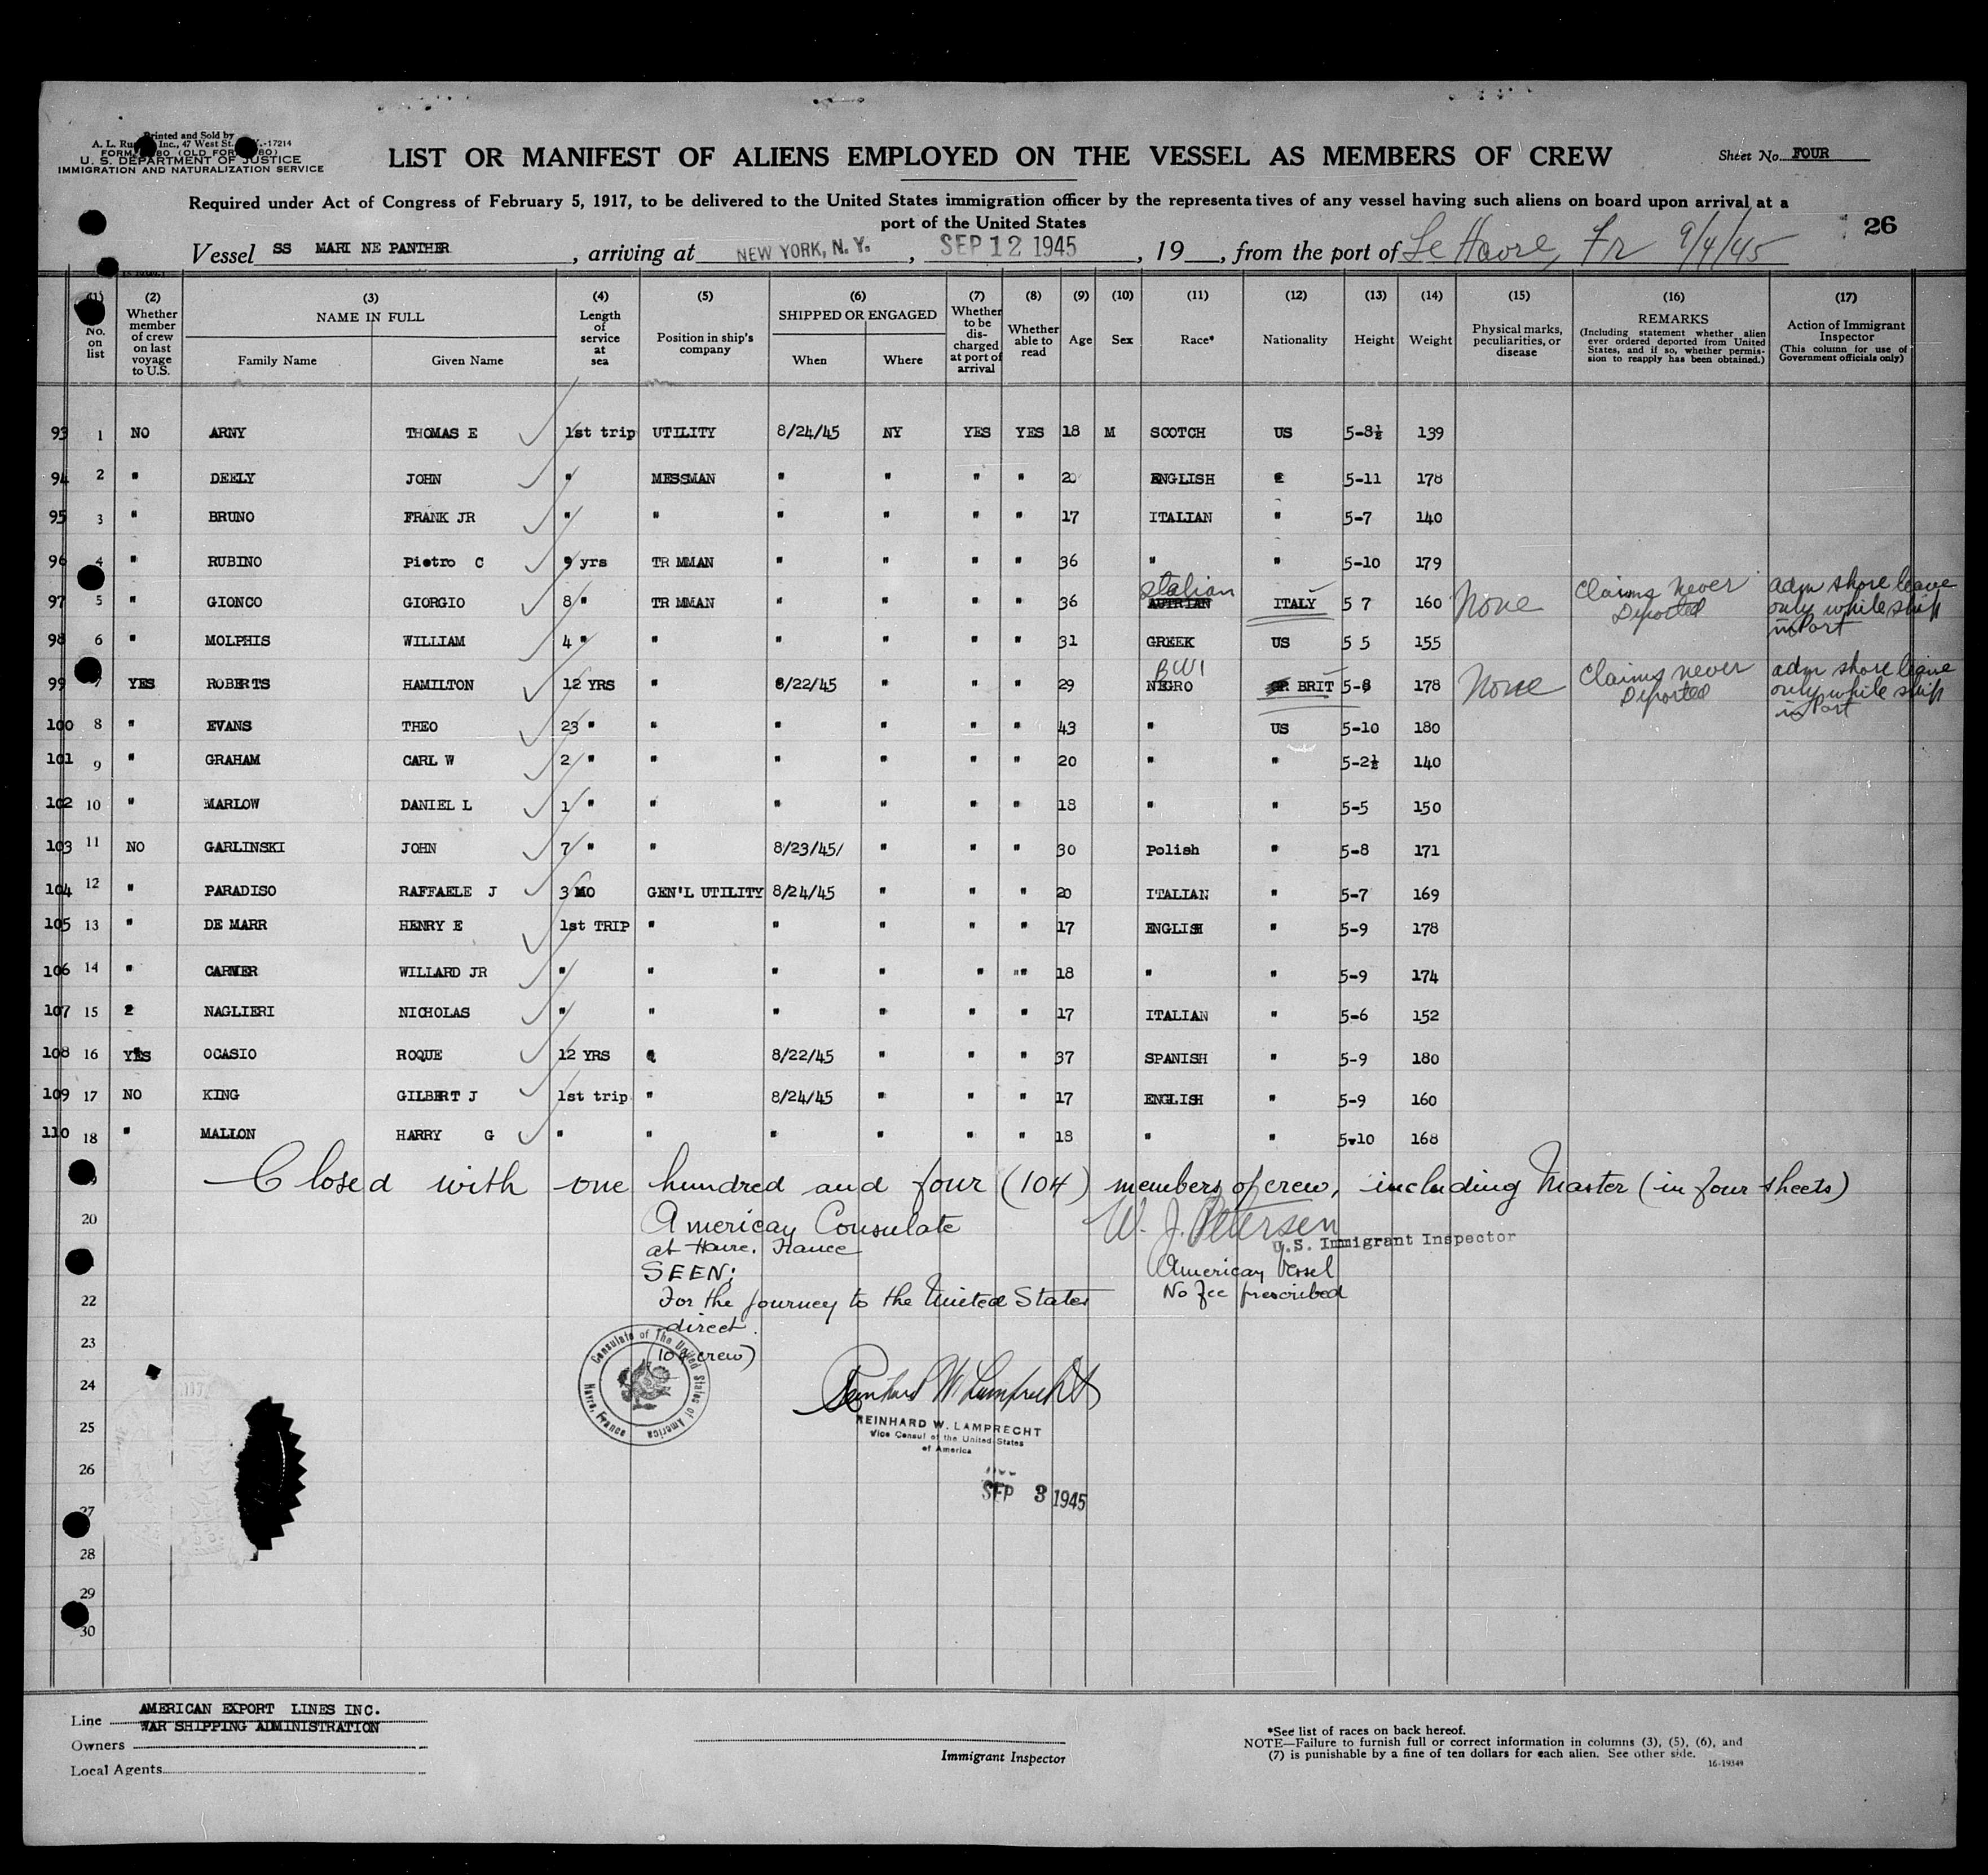 Printed and Sold by
A. L. Inc., 47 West St. -17214
U. S. DEPARTMENT OF JUSTICE
IMMIGRATION AND NATURALIZATION SERVICE
LIST OR MANIFEST OF ALIENS EMPLOYED ON THE VESSEL AS MEMBERS OF CREW
Sheet No. FOUR
Required under Act of Congress of February 5, 1917, to be delivered to the United States immigration officer by the representatives of any vessel having such aliens on board upon arrival at a
port of the United States
26
Vessel SS MARI NE PANTHER, arriving at NEW YORK, N.Y., SEP 12 1945, 19__, from the port of Le Havre, Fr 9/4/45
(1) No. on list
(2) Whether member of crew on last voyage to U.S.
(3) NAME IN FULL Family Name Given Name
(4) Length of service at sea
(5) Position in ship's company
(6) SHIPPED OR ENGAGED When Where
(7) Whether to be discharged at port of arrival
(8) Whether able to read
(9) Age
(10) Sex
(11) Race*
(12) Nationality
(13) Height
(14) Weight
(15) Physical marks, peculiarities, or disease
(16) REMARKS (Including statement whether alien ever ordered deported from United States, and if so, whether permission to reapply has been obtained.)
(17) Action of Immigrant Inspector (This column for use of Government officials only)
93 1 NO ARNY THOMAS E 1st trip UTILITY 8/24/45 NY YES YES 18 M SCOTCH US 5-8½ 139
94 2 " DEELY JOHN " MESSMAN " " " " 20 ENGLISH " 5-11 178
95 3 " BRUNO FRANK JR " " " " " " 17 ITALIAN " 5-7 140
96 4 " RUBINO Pietro C 9 yrs TR MMAN " " " " 36 " " 5-10 179
97 5 " GIONCO GIORGIO 8 " TR MMAN " " " " 36 Italian ITALY 5 7 160 None Claims never Deported adm shore leave only while ship in Port
98 6 " MOLPHIS WILLIAM 4 " " " " " " 31 GREEK US 5 5 155
99 7 YES ROBERTS HAMILTON 12 YRS " 8/22/45 " " " 29 BWI NEGRO BRIT 5-8 178 None Claims never Deported adm shore leave only while ship in Port
100 8 " EVANS THEO 23 " " " " " " 43 " US 5-10 180
101 9 " GRAHAM CARL W 2 " " " " " " 20 " " 5-2½ 140
102 10 " MARLOW DANIEL L 1 " " " " " " 18 " " 5-5 150
103 11 NO GARLINSKI JOHN 7 " " 8/23/45/ " " " 30 Polish " 5-8 171
104 12 " PARADISO RAFFAELE J 3 MO GEN'L UTILITY 8/24/45 " " " 20 ITALIAN " 5-7 169
105 13 " DE MARR HENRY E 1st TRIP " " " " " 17 ENGLISH " 5-9 178
106 14 " CARVER WILLARD JR " " " " " "" 18 " " 5-9 174
107 15 " NAGLIERI NICHOLAS " " " " " " 17 ITALIAN " 5-6 152
108 16 YES OCASIO ROQUE 12 YRS " 8/22/45 " " " 37 SPANISH " 5-9 180
109 17 NO KING GILBERT J 1st trip " 8/24/45 " " " 17 ENGLISH " 5-9 160
110 18 " MALLON HARRY G " " " " " " 18 " " 5-10 168
Closed with one hundred and four (104) members of crew, including Master (in four sheets)
20
American Consulate
W. J. Petersen
at Havre, France
U.S. Immigrant Inspector
SEEN:
American Vessel
22
For the journey to the United States
No fee prescribed
direct.
23
(104 crew)
Consulate of The United States of America Havre, France
24
REINHARD W. LAMPRECHT
25
Vice Consul of the United States
of America
26
SEP 3 1945
27
28
29
30
Line AMERICAN EXPORT LINES INC.
WAR SHIPPING ADMINISTRATION
Owners
Local Agents
Immigrant Inspector
*See list of races on back hereof.
NOTE—Failure to furnish full or correct information in columns (3), (5), (6), and
(7) is punishable by a fine of ten dollars for each alien. See other side.
16-19349